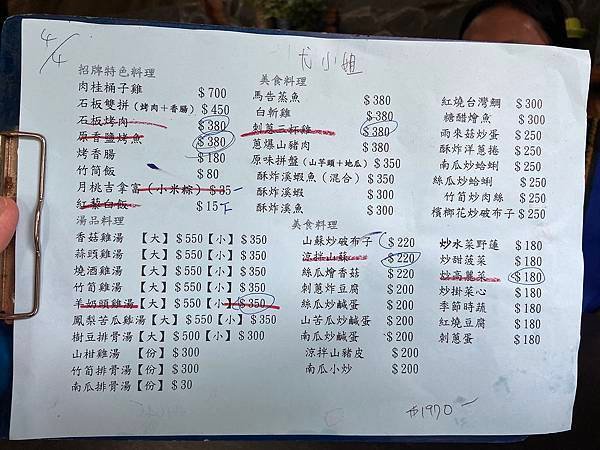 4/4
尤小姐
招牌特色料理
肉桂桶子雞 $700
石板雙拼(烤肉+香腸) $450
石板烤肉 $380
原香鹽烤魚 $380
烤香腸 $180
竹筒飯 $80
月桃吉拿富(小米粽) $35
紅藜白飯 $15 T
湯品料理
香菇雞湯【大】$550【小】$350
蒜頭雞湯【大】$550【小】$350
燒酒雞湯【大】$550【小】$350
竹筍雞湯【大】$550【小】$350
羊奶頭雞湯【大】$550【小】$350
鳳梨苦瓜雞湯【大】$550【小】$350
樹豆排骨湯【大】$550【小】$300
山柑雞湯【份】$300
竹筍排骨湯【份】$300
南瓜排骨湯【份】$30
美食料理
馬告蒸魚 $380
白斬雞 $380
刺蔥三杯雞 $380
蔥爆山豬肉 $380
原味拼盤(山芋頭+地瓜) $350
酥炸溪蝦魚(混合) $350
酥炸溪蝦 $300
酥炸溪魚 $300
紅燒台灣鯛 $300
糖醋燴魚 $300
雨來菇炒蛋 $250
酥炸洋蔥捲 $250
南瓜炒蛤蜊 $250
絲瓜炒蛤蜊 $250
竹筍炒肉絲 $250
檳榔花炒破布子 $250
美食料理
山蘇炒破布子 $220
涼拌山蘇 $220
絲瓜燴香菇 $220
刺蔥炸豆腐 $200
絲瓜炒鹹蛋 $200
山苦瓜炒鹹蛋 $200
南瓜炒鹹蛋 $200
涼拌山豬皮 $200
南瓜小炒 $200
炒水菜野蓮 $180
炒甜菠菜 $180
炒高麗菜 $180
炒掛菜心 $180
季節時蔬 $180
紅燒豆腐 $180
刺蔥蛋 $180
$1970